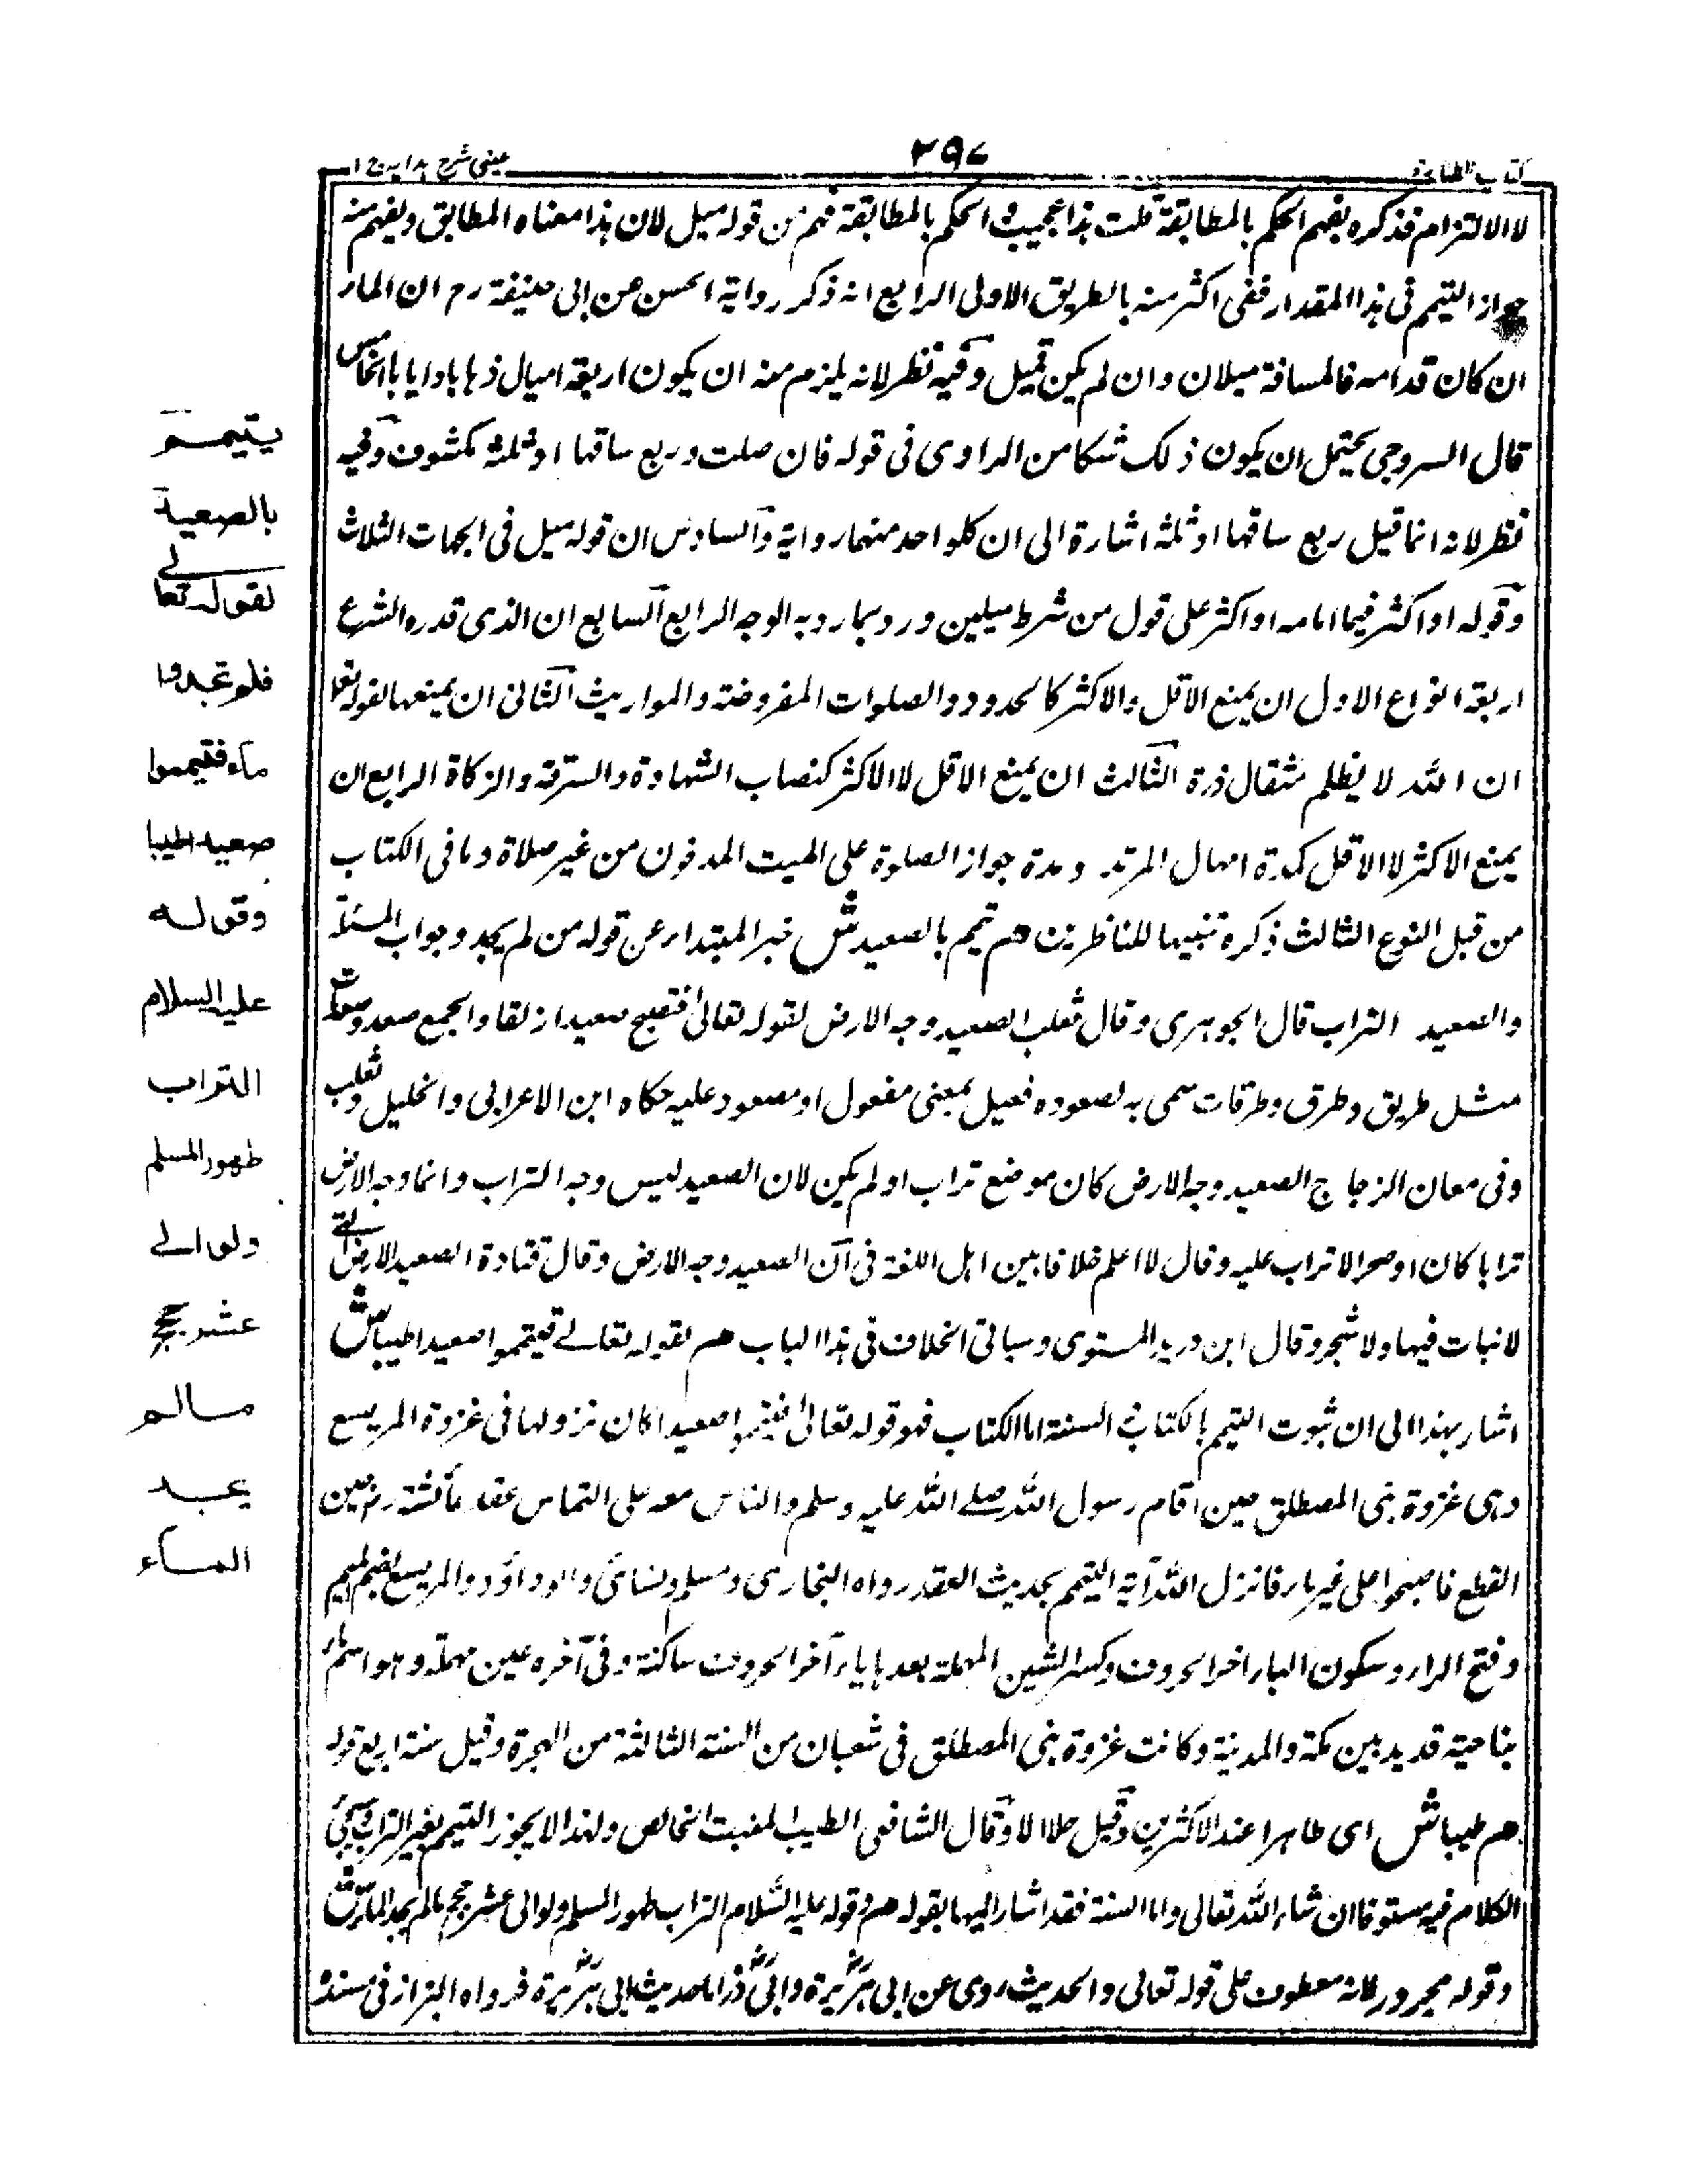 كتاب الطهارة
٣٩٧
عينى شرح هدايه ج ١
لا الالتزام فذكره يفهم الحكم بالمطابقة قلت هذا عجيب والحكم بالمطابقة فهم من قوله ميل لان هذا معناه المطابق ويفهم منه
جواز التيمم فى هذا المقدار ففى اكثر منه بالطريق الاولى الرابع انه ذكر رواية الحسن عن ابى حنيفة رح ان الماء
ان كان قدامه فالمسافة ميلان وان لم يكن فميل وفيه نظر لانه يلزم منه ان يكون اربعة اميال ذهابا وايابا الخامس
قال السروجى يحتمل ان يكون ذلك شكا من الراوى فى قوله فان صلت وربع ساقها او ثلثه مكشوف وفيه
نظر لانه انما قيل ربع ساقها او ثلثه اشارة الى ان كلواحد منهما رواية والسادس ان قوله ميل فى الجهات الثلاث
وقوله او اكثر فيما امامه او اكثر على قول من شرط ميلين ورد بما رد به الوجه الرابع السابع ان الذى قدره الشرع
اربعة انواع الاول ان يمنع الاقل والاكثر كالحدود والصلوات المفروضة والمواريث الثانى ان يمنعهما لقوله تعا
ان الله لا يظلم مثقال ذرة الثالث ان يمنع الاقل لا الاكثر كنصاب الشهادة والسرقة والزكاة الرابع ان
يمنع الاكثر لا الاقل كمدة امهال المرتد ومدة جواز الصلوة على الميت المدفون من غير صلاة وما فى الكتاب
من قبل النوع الثالث ذكره تنبيها للناظرين هم تيمم بالصعيد ش خبر المبتداء عن قوله من لم يجد وجواب المسئلة
والصعيد التراب قال الجوهرى وقال ثعلب الصعيد وجه الارض لقوله تعالى فتصبح صعيدا زلقا والجمع صعد وصعدات
مثل طريق وطرق وطرقات سمى به لصعوده فعيل بمعنى مفعول او مصعود عليه حكاه ابن الاعرابى والخليل وثعلب
وفى معان الزجاج الصعيد وجه الارض كان موضع تراب او لم يكن لان الصعيد ليس وجه التراب وانما وجه الارض
ترابا كان او صخرا لا تراب عليه وقال لا اعلم خلافا بين اهل اللغة فى ان الصعيد وجه الارض وقال قتادة الصعيد الارض التى
لا نبات فيها ولا شجر وقال ابن دريد المستوى وسياتى الخلاف فى هذا الباب هم لقوله تعالے فتيمموا صعيدا طيبا ش
اشار بهذا الى ان ثبوت التيمم بالكتاب والسنة اما الكتاب فهو قوله تعالى فتيمموا صعيدا كان نزولها فى غزوة المريسع
وهى غزوة بنى المصطلق حين اقام رسول الله صلے الله عليه وسلم والناس معه على التماس عقد عائشة رض حين
انقطع فاصبحوا على غير ماء فانزل الله آية التيمم بحديث العقد رواه البخارى ومسلم ونسائى وابو داؤد والمريسع بضم الميم
وفتح الراء وسكون الياء اخر الحروف وكسر الشين المهملة بعدها ياء آخر الحروف ساكنة وفى آخره عين مهملة وهو اسم ماء
بناحية قديد بين مكة والمدينة وكانت غزوة بنى المصطلق فى شعبان من السنة الثالثة من الهجرة وقيل سنة اربع قوله
هم طيبا ش اى طاهرا عند الاكثرين وقيل حلالا وقال الشافعى الطيب المنبت الخالص ولهذا لا يجوز التيمم بغير التراب وسيجئ
الكلام فيه مستوفا ان شاء الله تعالى واما السنة فقد اشار اليها بقوله هم وقوله عليه السلام التراب طهور المسلم ولو الى عشر حجج ما لم يجد الماء ش
وقوله مجرور لانه معطوف على قوله تعالى والحديث روى عن ابى هريرة وابى ذر اما حديث ابى هريرة فرواه البزاز فى مسنده
يتيمم
بالصعيد
لقوله تعالے
فلم تجدوا
ماء فتيمموا
صعيدا طيبا
وقوله
عليه السلام
التراب
طهور المسلم
ولو الے
عشر حجج
مالم
يجد
الماء